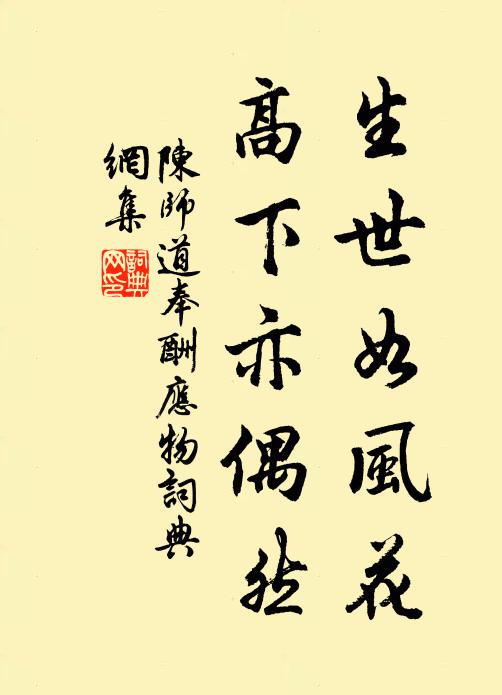 生世如風花
高下亦偶然
陳師道奉酬應物詞典
網集
詞典
网印